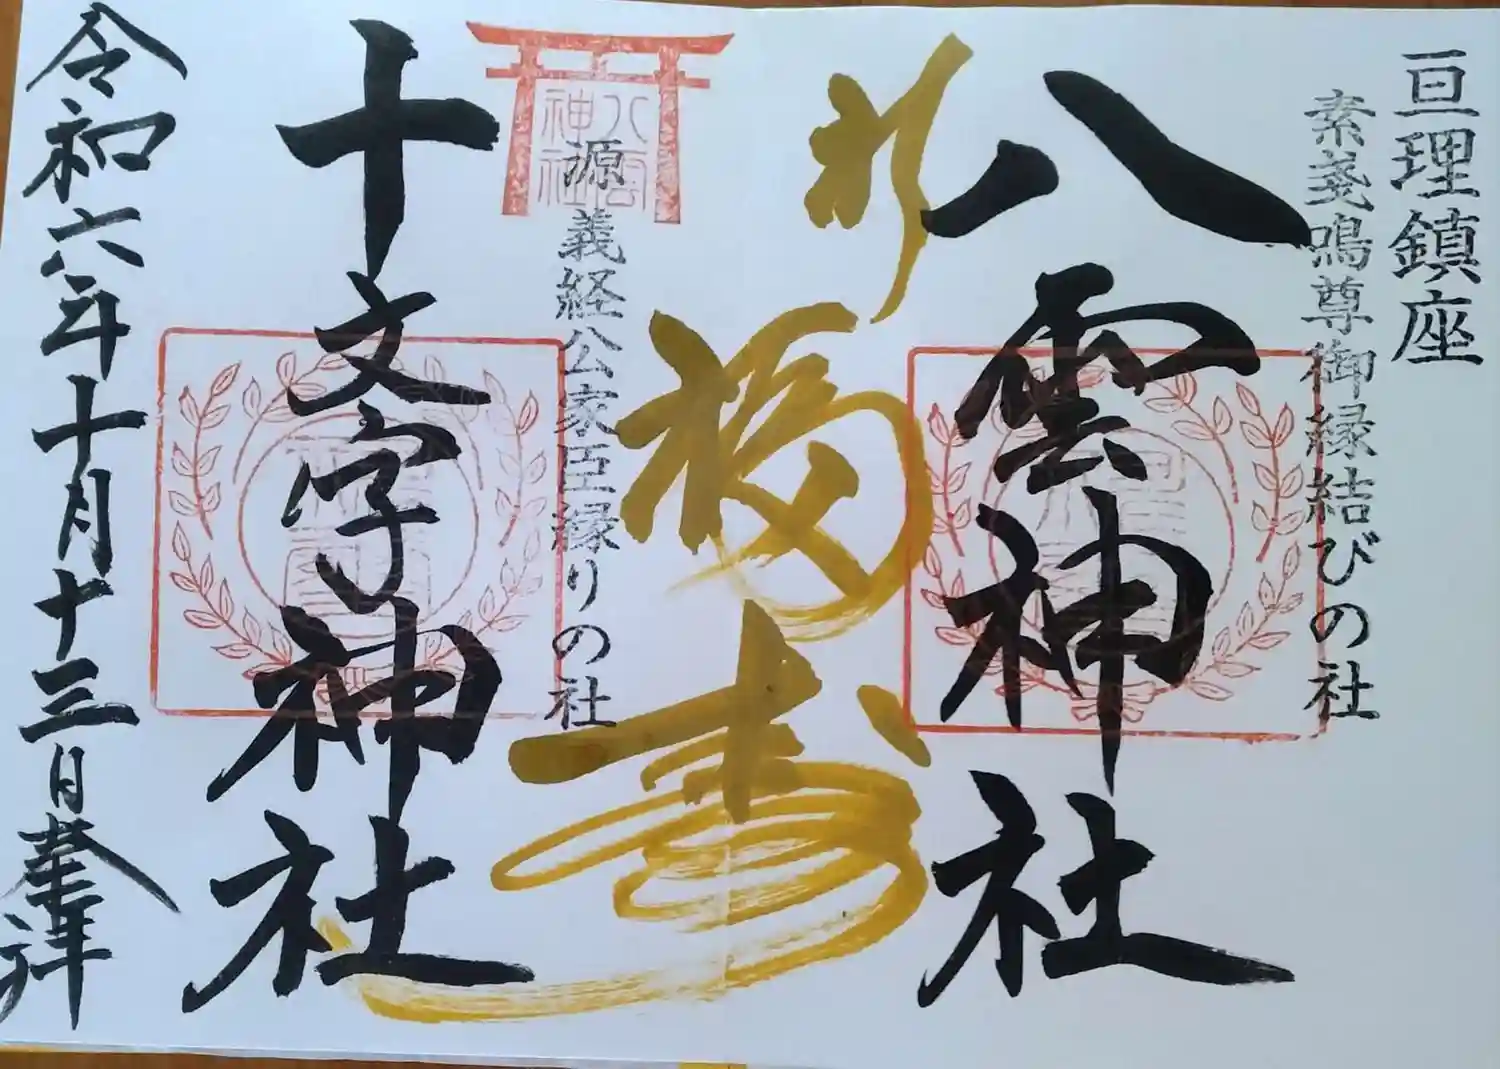 亘理鎮座
素戔鳴尊御縁結びの社
八雲神社
祈
福寿
八雲神社
源義経公家臣縁りの社
十文字神社
令和六年十月十三日奉拝